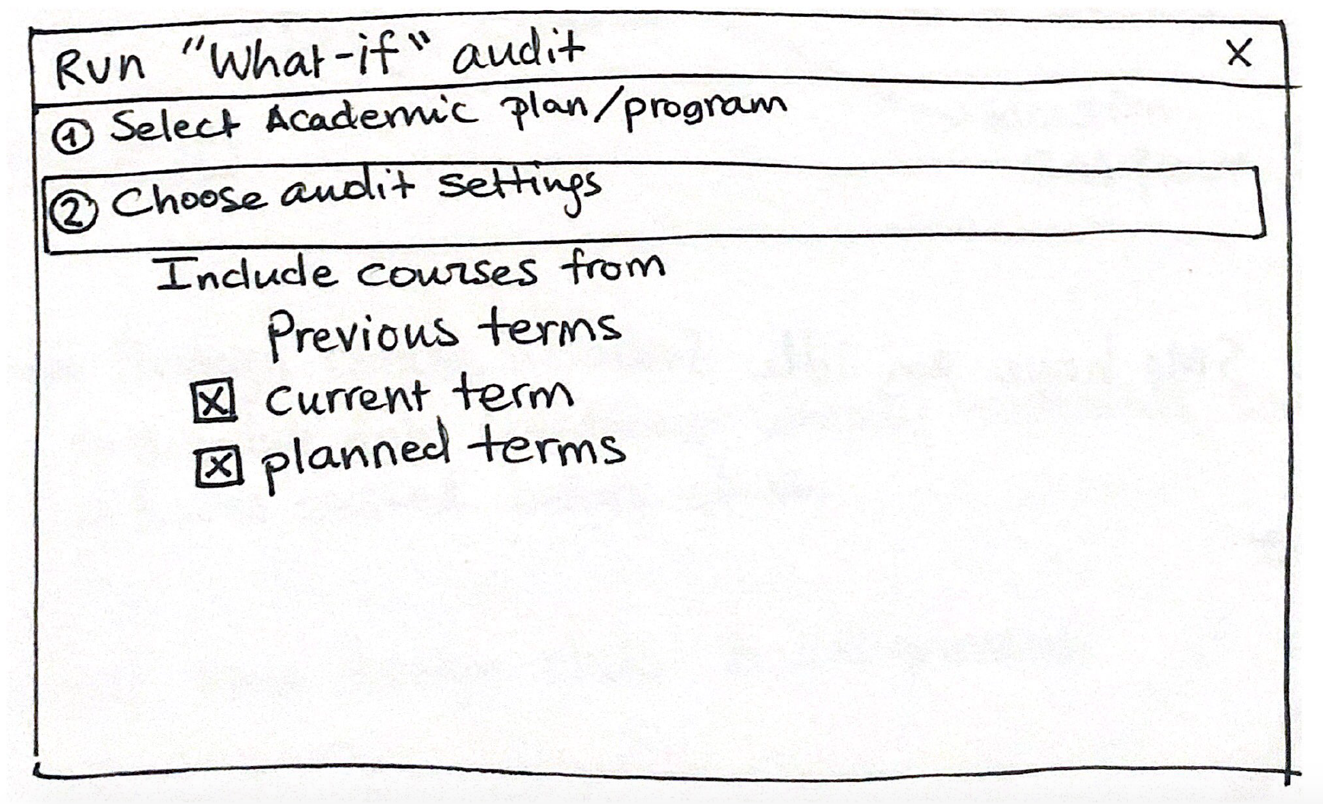 Run "What-if" audit X
① Select Academic plan/program
② Choose audit settings
Include courses from
Previous terms
☒ Current term
☒ planned terms